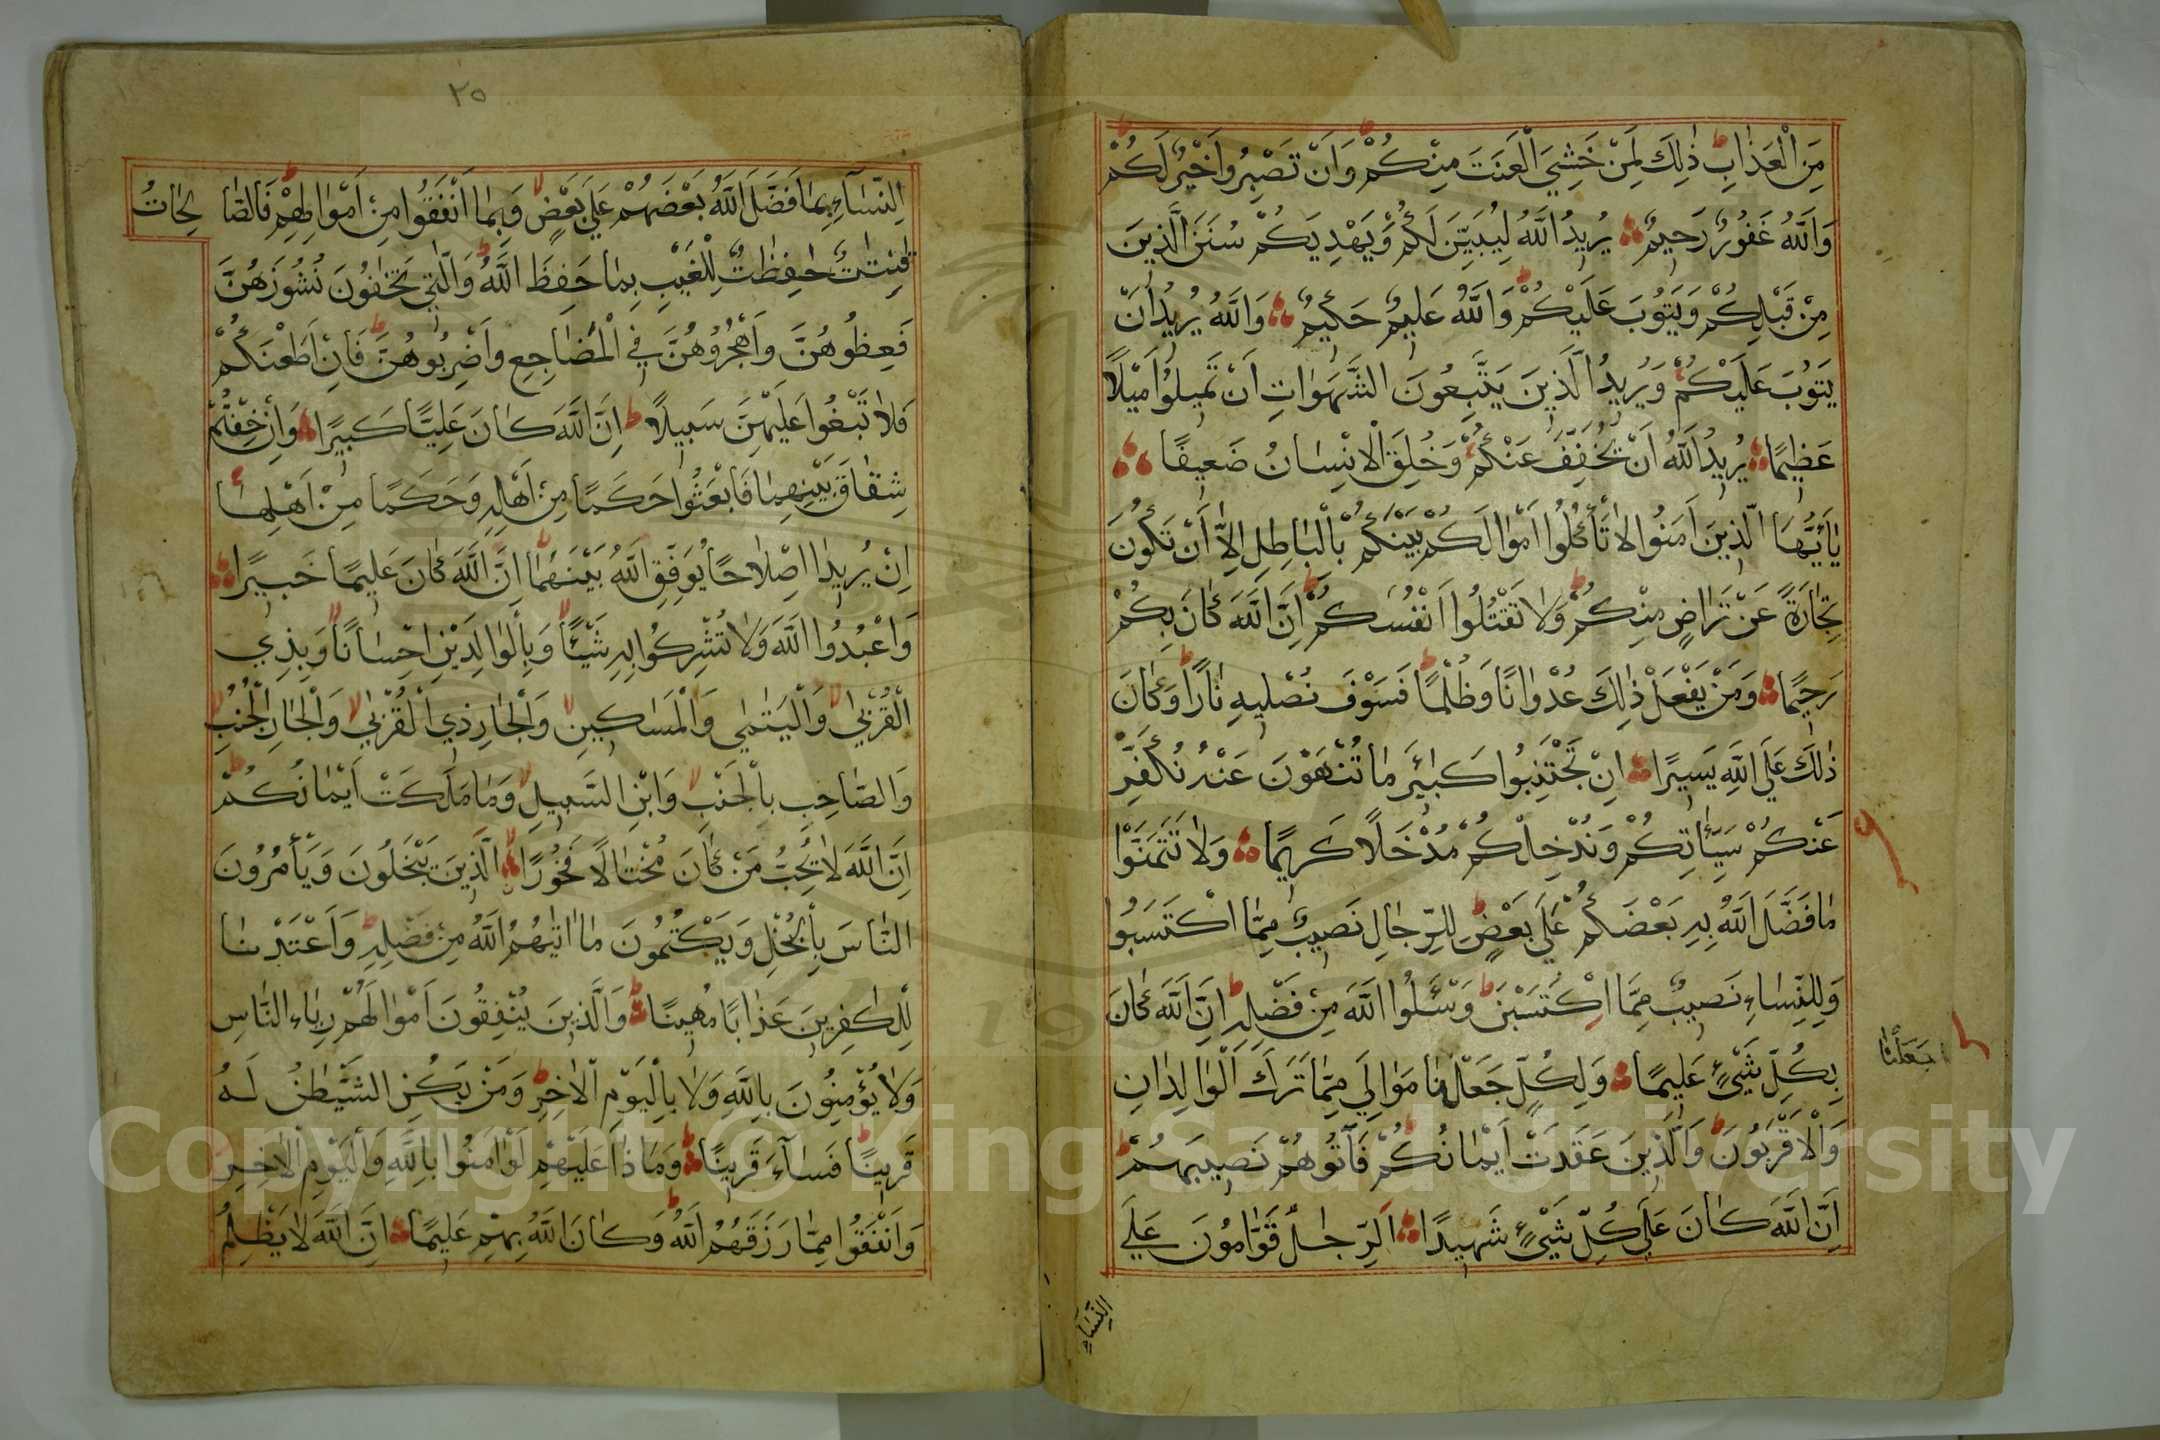 مِنَ الْعَذَابِ ط ذٰلِكَ لِمَنْ خَشِيَ الْعَنَتَ مِنْكُمْ ط وَاَنْ تَصْبِرُوا خَيْرٌ لَكُمْ ط
وَاللّٰهُ غَفُورٌ رَحِيمٌ يُرِيدُ اللّٰهُ لِيُبَيِّنَ لَكُمْ وَيَهْدِيَكُمْ سُنَنَ الَّذِينَ
مِنْ قَبْلِكُمْ وَيَتُوبَ عَلَيْكُمْ ط وَاللّٰهُ عَلِيمٌ حَكِيمٌ وَاللّٰهُ يُرِيدُ اَنْ
يَتُوبَ عَلَيْكُمْ وَيُرِيدُ الَّذِينَ يَتَّبِعُونَ الشَّهَوَاتِ اَنْ تَمِيلُوا مَيْلًا
عَظِيمًا يُرِيدُ اللّٰهُ اَنْ يُخَفِّفَ عَنْكُمْ وَخُلِقَ الْاِنْسَانُ ضَعِيفًا
يٰاَيُّهَا الَّذِينَ اٰمَنُوا لَا تَأْكُلُوا اَمْوَالَكُمْ بَيْنَكُمْ بِالْبَاطِلِ اِلَّا اَنْ تَكُونَ
تِجَارَةً عَنْ تَرَاضٍ مِنْكُمْ ط وَلَا تَقْتُلُوا اَنْفُسَكُمْ ط اِنَّ اللّٰهَ كَانَ بِكُمْ
رَحِيمًا وَمَنْ يَفْعَلْ ذٰلِكَ عُدْوَانًا وَظُلْمًا فَسَوْفَ نُصْلِيهِ نَارًا ط وَكَانَ
ذٰلِكَ عَلَى اللّٰهِ يَسِيرًا اِنْ تَجْتَنِبُوا كَبَائِرَ مَا تُنْهَوْنَ عَنْهُ نُكَفِّرْ
عَنْكُمْ سَيِّاٰتِكُمْ وَنُدْخِلْكُمْ مُدْخَلًا كَرِيمًا وَلَا تَتَمَنَّوْا
مَا فَضَّلَ اللّٰهُ بِهِ بَعْضَكُمْ عَلَى بَعْضٍ ط لِلرِّجَالِ نَصِيبٌ مِمَّا اكْتَسَبُوا
وَلِلنِّسَاءِ نَصِيبٌ مِمَّا اكْتَسَبْنَ ط وَسْئَلُوا اللّٰهَ مِنْ فَضْلِهِ ط اِنَّ اللّٰهَ كَانَ
بِكُلِّ شَيْءٍ عَلِيمًا وَلِكُلٍّ جَعَلْنَا مَوَالِيَ مِمَّا تَرَكَ الْوَالِدَانِ
وَالْاَقْرَبُونَ ط وَالَّذِينَ عَقَدَتْ اَيْمَانُكُمْ فَاٰتُوهُمْ نَصِيبَهُمْ ط
اِنَّ اللّٰهَ كَانَ عَلَى كُلِّ شَيْءٍ شَهِيدًا اَلرِّجَالُ قَوَّامُونَ عَلَى
جَعَلْنَا
النِّسَاءِ
٢٥
النِّسَآءِ بِمَا فَضَّلَ اللّٰهُ بَعْضَهُمْ عَلَى بَعْضٍ وَبِمَا اَنْفَقُوا مِنْ اَمْوَالِهِمْ ط فَالصَّالِحَاتُ
قٰنِتٰتٌ حٰفِظٰتٌ لِلْغَيْبِ بِمَا حَفِظَ اللّٰهُ ط وَالّٰتِي تَخَافُونَ نُشُوزَهُنَّ
فَعِظُوهُنَّ وَاهْجُرُوهُنَّ فِي الْمَضَاجِعِ وَاضْرِبُوهُنَّ ط فَاِنْ اَطَعْنَكُمْ
فَلَا تَبْغُوا عَلَيْهِنَّ سَبِيلًا ط اِنَّ اللّٰهَ كَانَ عَلِيًّا كَبِيرًا وَاِنْ خِفْتُمْ
شِقَاقَ بَيْنِهِمَا فَابْعَثُوا حَكَمًا مِنْ اَهْلِهِ وَحَكَمًا مِنْ اَهْلِهَا
اِنْ يُرِيدَا اِصْلَاحًا يُوَفِّقِ اللّٰهُ بَيْنَهُمَا ط اِنَّ اللّٰهَ كَانَ عَلِيمًا خَبِيرًا
وَاعْبُدُوا اللّٰهَ وَلَا تُشْرِكُوا بِهِ شَيْئًا وَبِالْوَالِدَيْنِ اِحْسَانًا وَبِذِي
الْقُرْبَى وَالْيَتَامَى وَالْمَسَاكِينِ وَالْجَارِ ذِي الْقُرْبَى وَالْجَارِ الْجُنُبِ
وَالصَّاحِبِ بِالْجَنْبِ وَابْنِ السَّبِيلِ وَمَا مَلَكَتْ اَيْمَانُكُمْ ط
اِنَّ اللّٰهَ لَا يُحِبُّ مَنْ كَانَ مُخْتَالًا فَخُورًا الَّذِينَ يَبْخَلُونَ وَيَأْمُرُونَ
النَّاسَ بِالْبُخْلِ وَيَكْتُمُونَ مَا اٰتٰيهُمُ اللّٰهُ مِنْ فَضْلِهِ ط وَاَعْتَدْنَا
لِلْكٰفِرِينَ عَذَابًا مُهِينًا وَالَّذِينَ يُنْفِقُونَ اَمْوَالَهُمْ رِيَاءَ النَّاسِ
وَلَا يُؤْمِنُونَ بِاللّٰهِ وَلَا بِالْيَوْمِ الْاٰخِرِ ط وَمَنْ يَكُنِ الشَّيْطٰنُ لَهُ
قَرِينًا فَسَآءَ قَرِينًا وَمَاذَا عَلَيْهِمْ لَوْ اٰمَنُوا بِاللّٰهِ وَالْيَوْمِ الْاٰخِرِ
وَاَنْفَقُوا مِمَّا رَزَقَهُمُ اللّٰهُ ط وَكَانَ اللّٰهُ بِهِمْ عَلِيمًا اِنَّ اللّٰهَ لَا يَظْلِمُ
Copyright © King Saud University